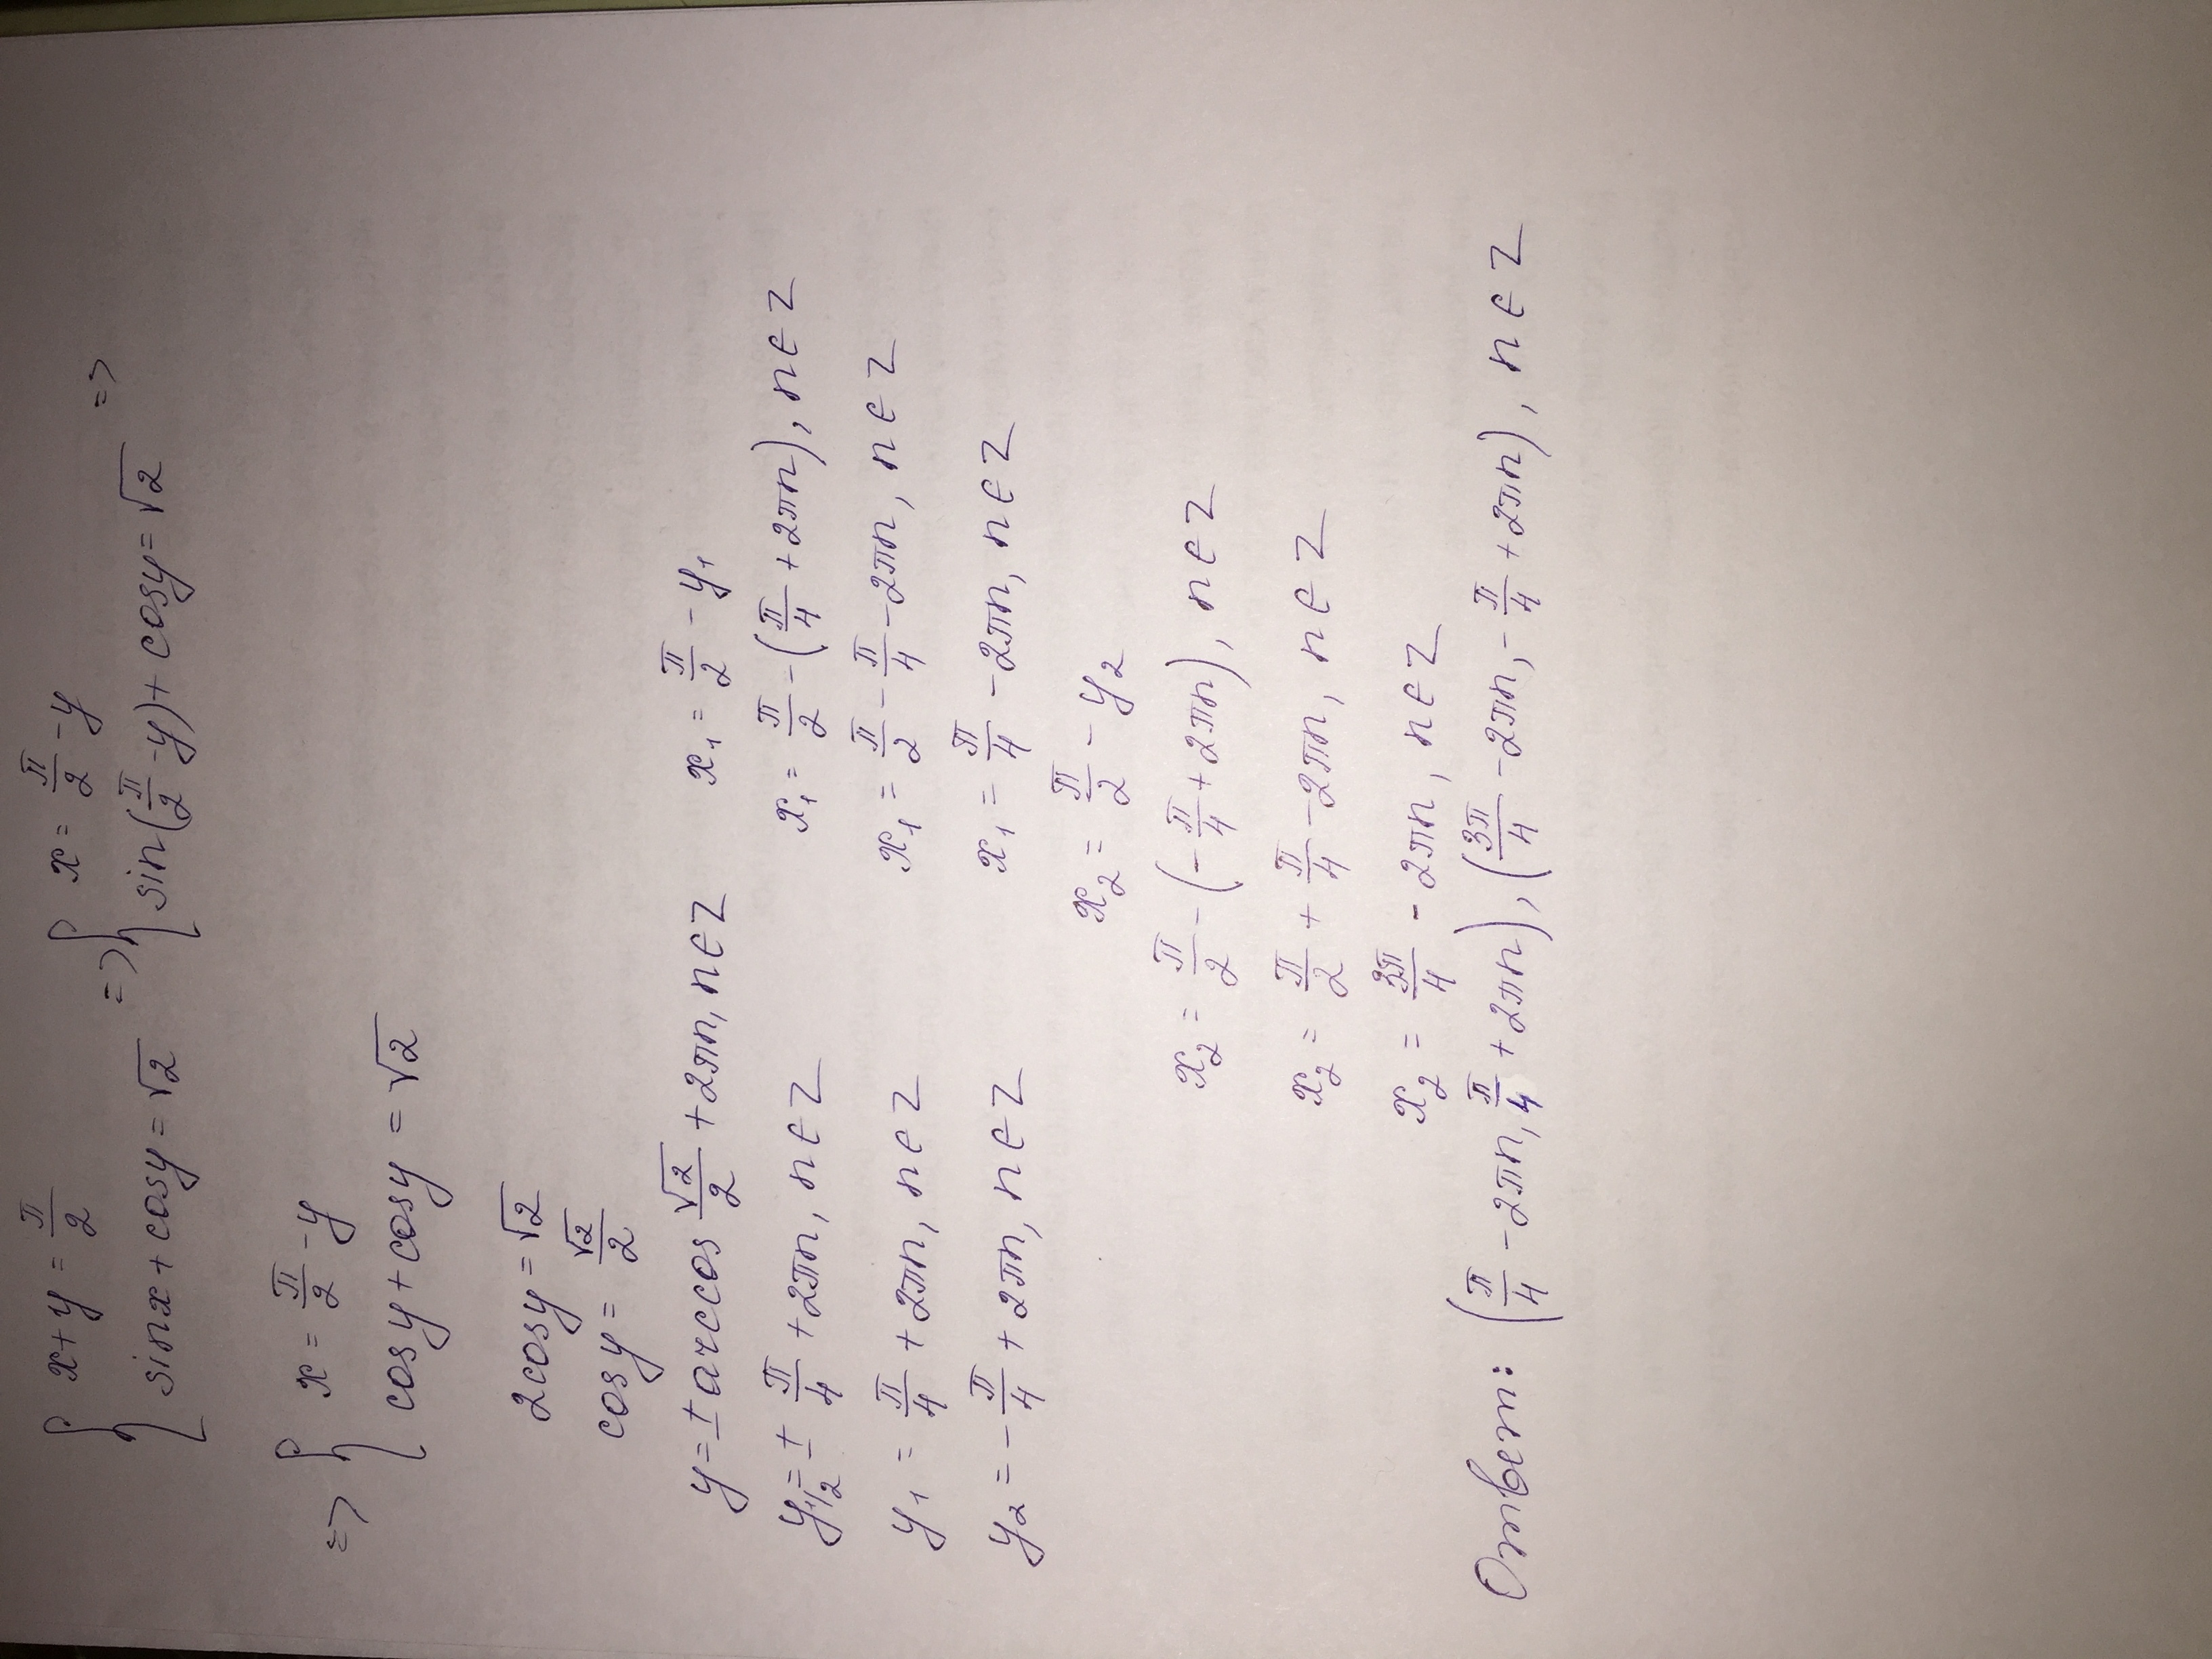 { x + y = π/2 => { x = π/2 - y
sin x + cos y = √2 sin(π/2 - y) + cos y = √2 =>
=> { x = π/2 - y
cos y + cos y = √2
2cos y = √2
cos y = √2/2
y = ± arccos √2/2 + 2πn, n ∈ Z x₁ = π/2 - y₁
y₁,₂ = ± π/4 + 2πn, n ∈ Z x₁ = π/2 - (π/4 + 2πn), n ∈ Z
y₁ = π/4 + 2πn, n ∈ Z x₁ = π/2 - π/4 - 2πn, n ∈ Z
y₂ = - π/4 + 2πn, n ∈ Z x₁ = π/4 - 2πn, n ∈ Z
x₂ = π/2 - y₂
x₂ = π/2 - (- π/4 + 2πn), n ∈ Z
x₂ = π/2 + π/4 - 2πn, n ∈ Z
x₂ = 3π/4 - 2πn, n ∈ Z
Ответ: (π/4 - 2πn, π/4 + 2πn), (3π/4 - 2πn, - π/4 + 2πn), n ∈ Z